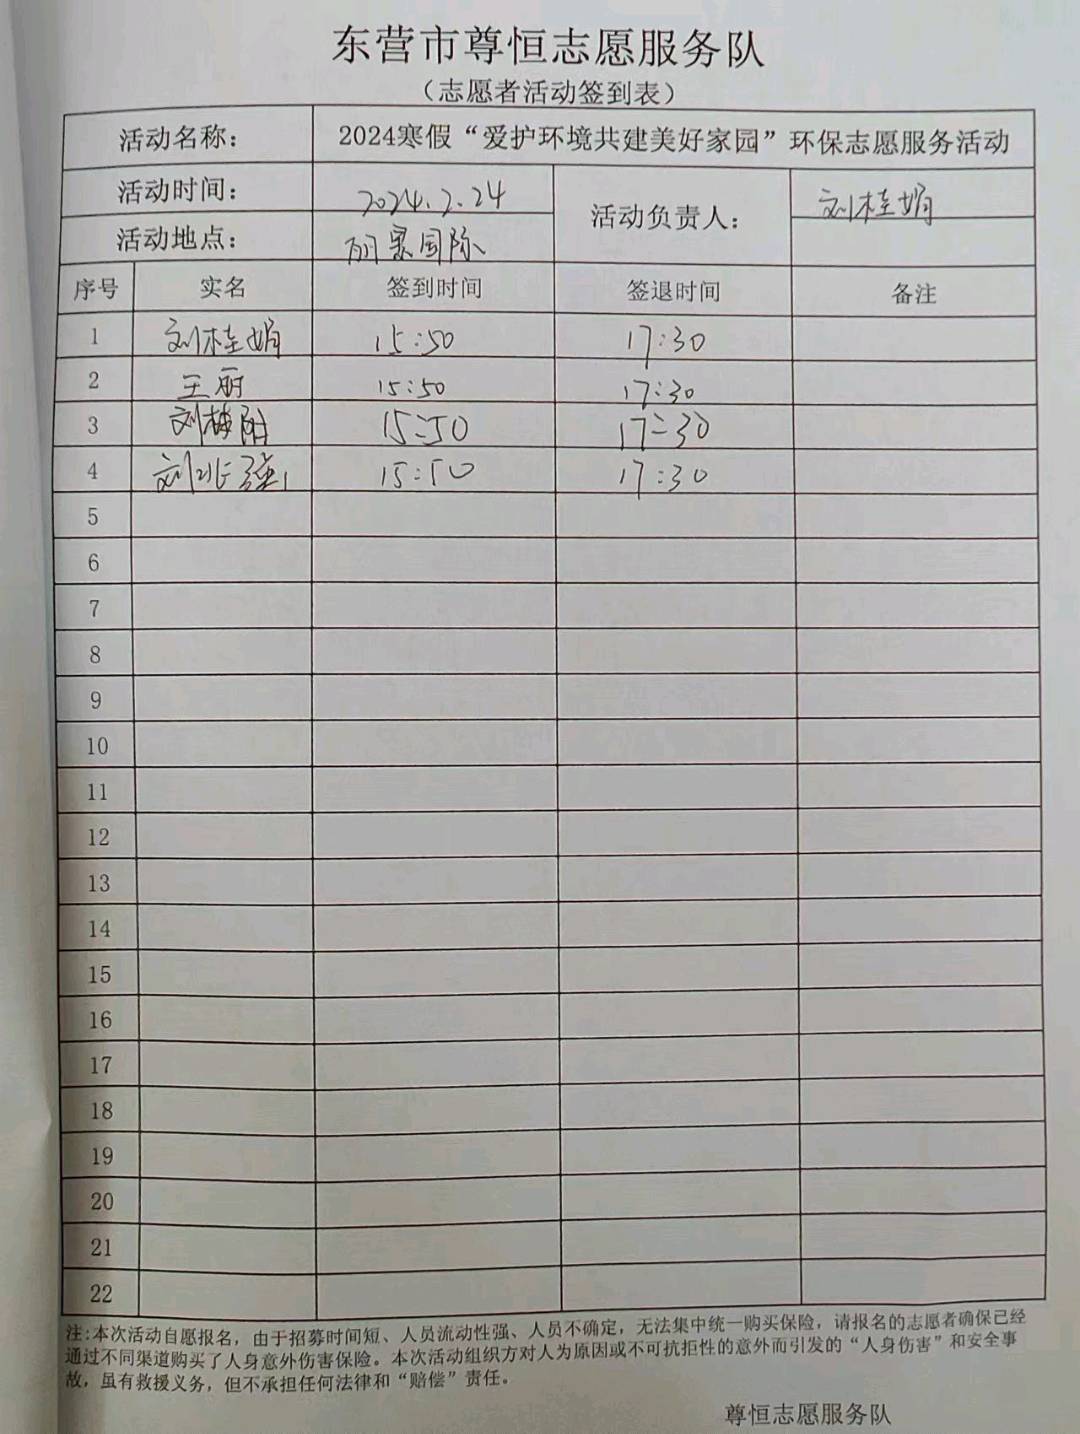 东营市尊恒志愿服务队
（志愿者活动签到表）
活动名称： 2024寒假“爱护环境共建美好家园”环保志愿服务活动
活动时间： 2024.2.24 活动负责人： 刘桂娟
活动地点： 丽景国际
序号 实名 签到时间 签退时间 备注
1 刘桂娟 15:50 17:30
2 王丽 15:50 17:30
3 刘 15:50 17:30
4 刘 15:50 17:30
5
6
7
8
9
10
11
12
13
14
15
16
17
18
19
20
21
22
注:本次活动自愿报名，由于招募时间短、人员流动性强、人员不确定，无法集中统一购买保险，请报名的志愿者确保已经
通过不同渠道购买了人身意外伤害保险。本次活动组织方对人为原因或不可抗拒性的意外而引发的“人身伤害”和安全事
故，虽有救援义务，但不承担任何法律和“赔偿”责任。
尊恒志愿服务队